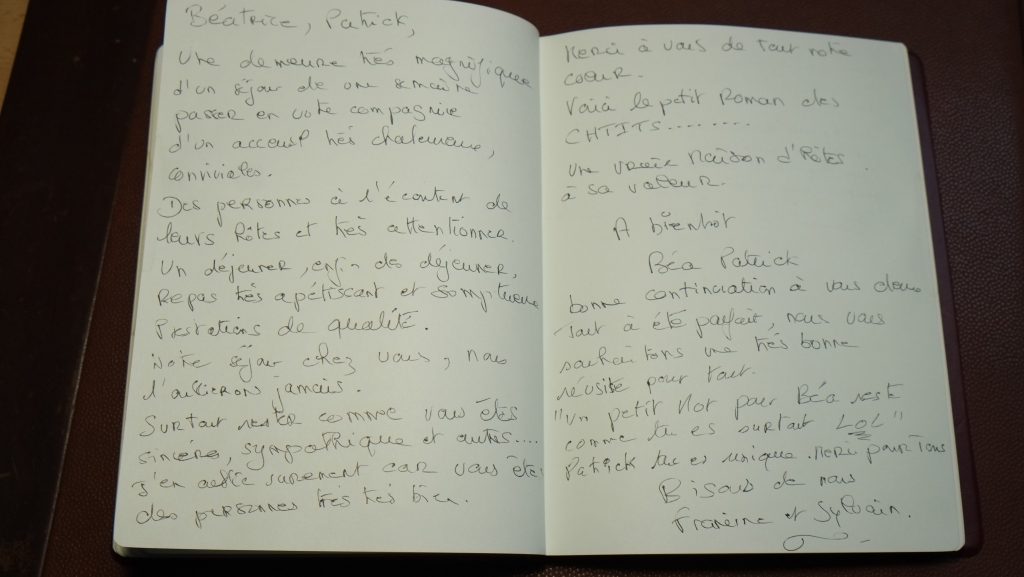 Béatrice, Patrick,
Une demeure très magnifique
d'un séjour de une semaine
passer en votre compagnie
d'un acceuil très chaleureuse,
conviviales.
Des personnes à l'écoutent de
leurs hôtes et très attentionner.
Un déjeuner, enfin des déjeuner,
Repas très apétissant et somptueux
Prestations de qualité.
Notre séjour chez vous, nous
l'oublierons jamais.
Surtout rester comme vous êtes
sincère, sympathique et autres....
J'en oublie surement car vous êtes
des personnes très très bien.
Merci à vous de tout notre
coeur.
Voici le petit Roman des
CHTITS........
Une vraie Maison d'Hôtes
à sa valeur.
A bientôt
Béa Patrick
bonne continuation à vous deux
Tout à été parfait, nous vous
souhaitons une très bonne
réusite pour tout.
"Un petit Mot pour Béa reste
comme tu es surtout LOL"
Patrick tu es unique. Merci pour Tous
Bisous de nous
Francine et Sylvain.